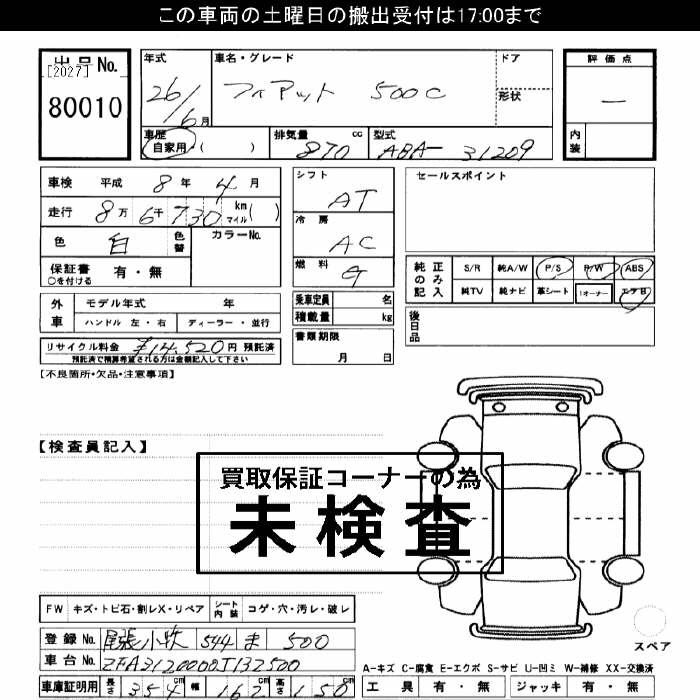 この車両の土曜日の搬出受付は17:00まで
出品No.
[2027]
80010
年式
26/6月
車名・グレード
フィアット 500C
ドア
形状
評価点
—
内装
車歴
自家用・( )
排気量 cc
870
型式
ABA- 31209
車検 平成 8年 4月
走行 8万6千730 km マイル( )
色 白 色替
カラーNo.
保証書 有・無
○を付ける
シフト
AT
冷房
AC
燃料
G
セールスポイント
純正のみ記入
S/R 純A/W P/S P/W ABS
純TV 純ナビ 革シート 1オーナー エアB
外車
モデル年式 年
ハンドル 左・右 ディーラー・並行
乗車定員 名
積載量 kg
後日品
リサイクル料金 ¥14,520円 預託済
預託済で精算希望される方は金額記入して下さい
書類期限
月 日
【不良箇所・欠品・注意事項】
【検査員記入】
買取保証コーナーの為
未検査
FW キズ・トビ石・割レX・リペア シート内装 コゲ・穴・汚レ・破レ
登録No. 尾張小牧 544 ま 500
車台No. ZFA3120000J132500
車庫証明用 長さ 354 cm 幅 162 cm 高さ 150 cm
スペア
A-キズ C-腐食 E-エクボ S-サビ U-凹ミ W-補修 XX-交換済
工具 有・無 ジャッキ 有・無